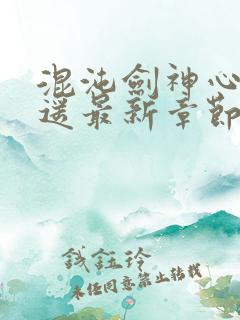 混沌劍神心
送最新章節
錢鈺玲
未经同意禁止转载